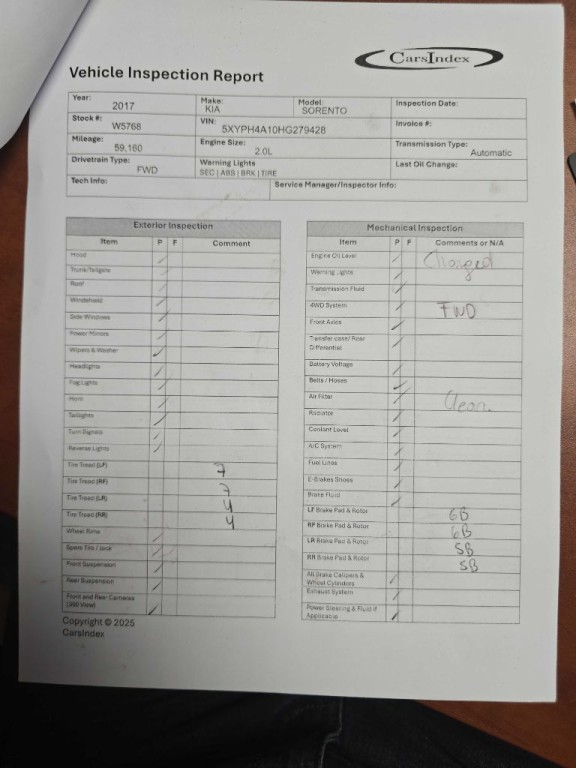 CarsIndex
Vehicle Inspection Report
Year: 2017 Make: KIA Model: SORENTO Inspection Date:
Stock #: W5768 VIN: 5XYPH4A10HG279428 Invoice #:
Mileage: 59,160 Engine Size: 2.0L Transmission Type: Automatic
Drivetrain Type: FWD Warning Lights SEC | ABS | BRK | TIRE Last Oil Change:
Tech Info: Service Manager/Inspector Info:
Exterior Inspection
Item P F Comment
Hood
Trunk/Tailgate
Roof
Windshield
Side Windows
Power Mirrors
Wipers & Washer
Headlights
Fog Lights
Horn
Taillights
Turn Signals
Reverse Lights
Tire Tread (LF) 7
Tire Tread (RF) 7
Tire Tread (LR) 4
Tire Tread (RR) 4
Wheel Rims
Spare Tire / Jack
Front Suspension
Rear Suspension
Front and Rear Cameras
(360 View)
Copyright © 2025
CarsIndex
Mechanical Inspection
Item P F Comments or N/A
Engine Oil Level Changed
Warning Lights
Transmission Fluid
4WD System FWD
Front Axles
Transfer case/ Rear
Differential
Battery Voltage
Belts / Hoses
Air Filter Clean
Radiator
Coolant Level
A/C System
Fuel Lines
E-Brakes Shoes
Brake Fluid
LF Brake Pad & Rotor 6B
RF Brake Pad & Rotor 6B
LR Brake Pad & Rotor 5B
RR Brake Pad & Rotor 5B
All Brake Calipers &
Wheel Cylinders
Exhaust System
Power Steering & Fluid if
Applicable